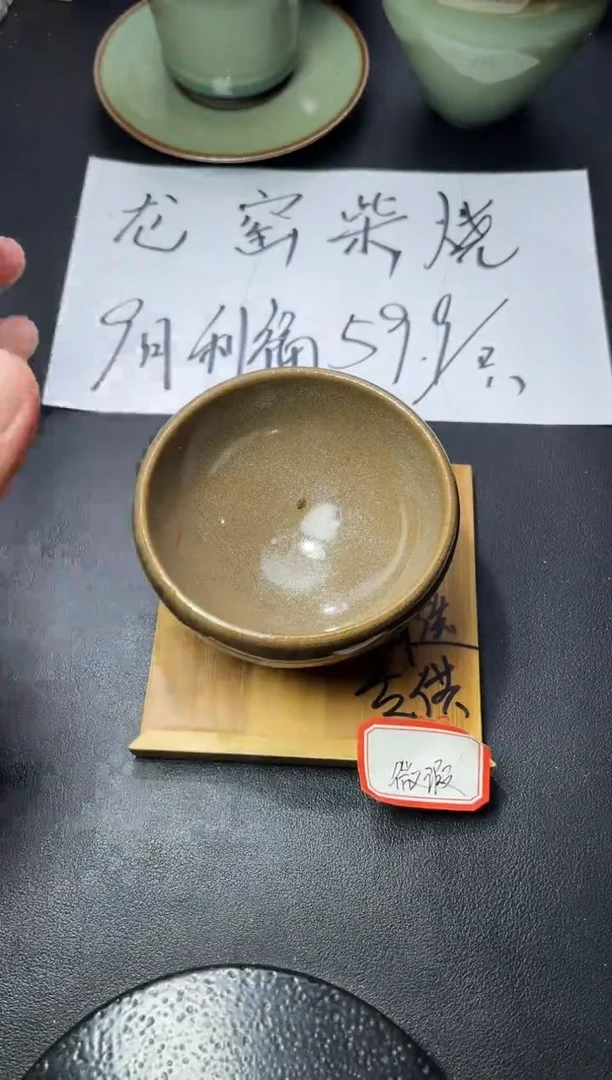 龙窑柴烧
9月利福59.9/只
供
微瑕